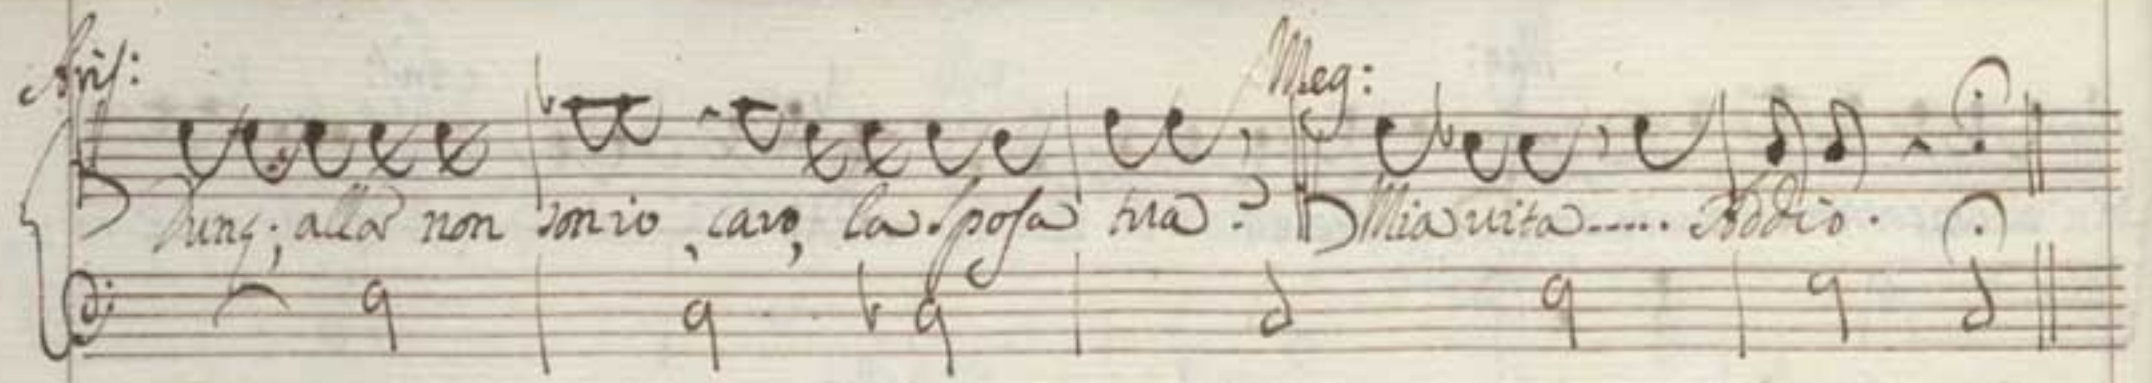 Aris: Meg:
Dunq; alla non son io, caro, la sposa tua? Mia vita..... Addio.